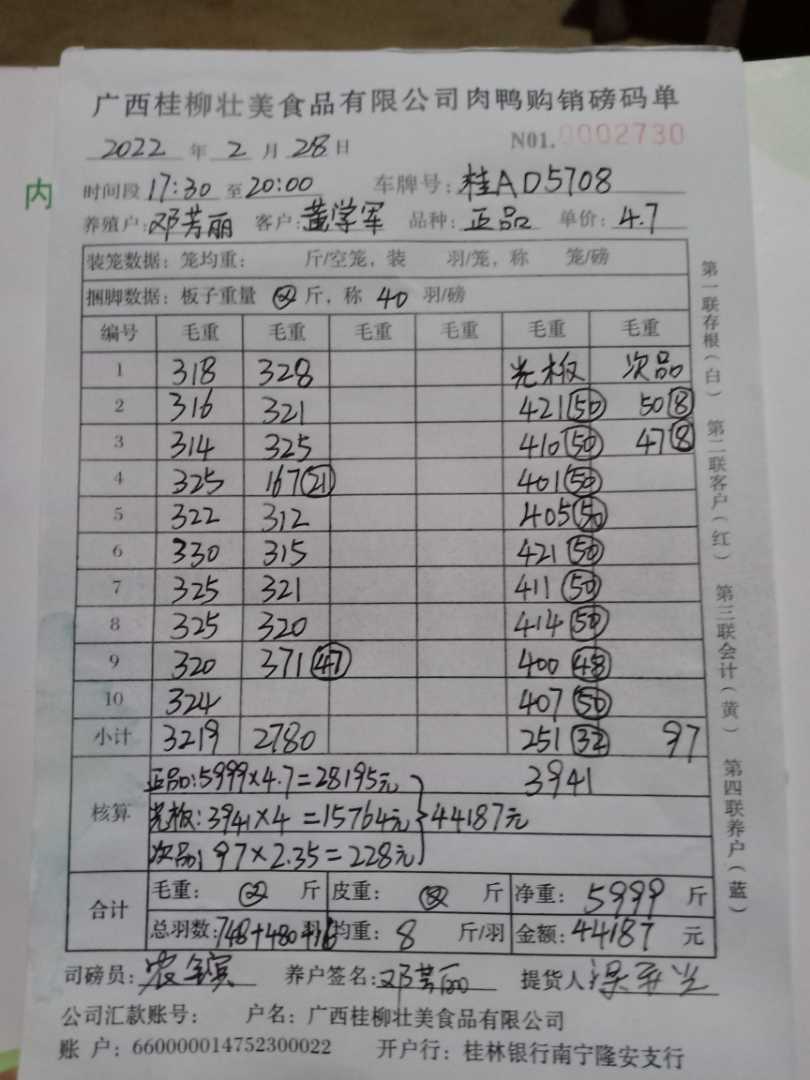 广西桂柳壮美食品有限公司肉鸭购销磅码单
2022年2月28日 N01.0002730
内
时间段17:30至20:00 车牌号:桂AD5708
养殖户:邓芳丽 客户:黄学军 品种:正品 单价:4.7
装笼数据:笼均重: 斤/空笼,装 羽/笼,称 笼/磅
捆脚数据:板子重量 斤,称 40 羽/磅
编号 毛重 毛重 毛重 毛重 毛重 毛重
1 318 328 光板 次品
2 316 321 421(50) 50(8)
3 314 325 410(50) 47(8)
4 325 167(21) 401(50)
5 322 312 405(50)
6 330 315 421(50)
7 325 321 411(50)
8 325 320 414(50)
9 320 371(47) 400(48)
10 324 407(50)
小计 3219 2780 251(32) 97
正品:5999×4.7=28195元 3941
核算 光板:3941×4=15764元 44187元
次品:97×2.35=228元
合计 毛重: 斤 皮重: 斤 净重:5999斤
总羽数:748+480+16羽 均重:8斤/羽 金额:44187元
司磅员: 养户签名:邓芳丽 提货人
公司汇款账号: 户名:广西桂柳壮美食品有限公司
账 户:660000014752300022 开户行:桂林银行南宁隆安支行
第一联存根(白) 第二联客户(红) 第三联会计(黄) 第四联养户(蓝)